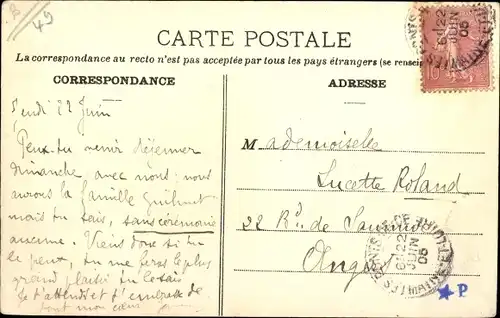 B
49
CARTE POSTALE
La correspondance au recto n'est pas acceptée par tous les pays étrangers (se rensei
CORRESPONDANCE
ADRESSE
10
6 22
JUIN
05
Jeudi 22 Juin
Peux-tu venir déjeuner
dimanche, avec nous: nous
aurons la famille
mais tu sais, sans cérémonie
aucune. Viens donc si tu
le peux, tu me feras le plus
grand plaisir tu le sais
Je t'attends et t'embrasse de
tout mon cœur
Mademoiselle
Lucette Roland
22 Rd. de Saumur
Angers
6 22
JUIN
05
MAINE-ET-LOIRE
★ P